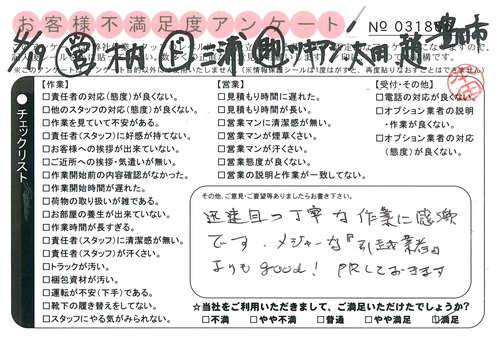 お客様不満足度アンケート
No 0318
豊市
三浦
太田 趙
チェックリスト
【作業】
□責任者の対応(態度)が良くない。
□他のスタッフの対応(態度)が良くない。
□作業を見ていて不安がある。
□責任者(スタッフ)に好感が持てない。
□お客様への挨拶が出来ていない。
□ご近所への挨拶・気遣いが無い。
□作業開始前の内容確認がなかった。
□作業開始時間が遅れた。
□荷物の取り扱いが雑である。
□お部屋の養生が出来ていない。
□作業時間が長すぎる。
□責任者(スタッフ)に清潔感が無い。
□責任者(スタッフ)が汗さい。
□トラックが汚い。
□梱包資材が汚い。
□運転が不安(下手)である。
□靴下の履き替えをしてない。
□スタッフにやる気がみられない。
【営業】
□見積もり時間に遅れた。
□見積もり時間が長い。
□営業マンに清潔感が無い。
□営業マンが煙草くさい。
□営業マンが汗さい。
□営業態度が良くない。
□営業の説明と作業が一致してない。
【受付・その他】
□電話の対応が良くない。
□オプション業者の説明
・作業が良くない。
□オプション業者の対応
(態度)が良くない。
その他、ご意見・ご要望等ありましたらお書き下さい。
迅速且つ丁寧な作業に感激
です。メジャーな『引越業務』
よりもgood! PRしておきます
☆当社をご利用いただきまして、ご満足いただけたでしょうか?
□不満 □やや不満 □普通 □やや満足 □満足